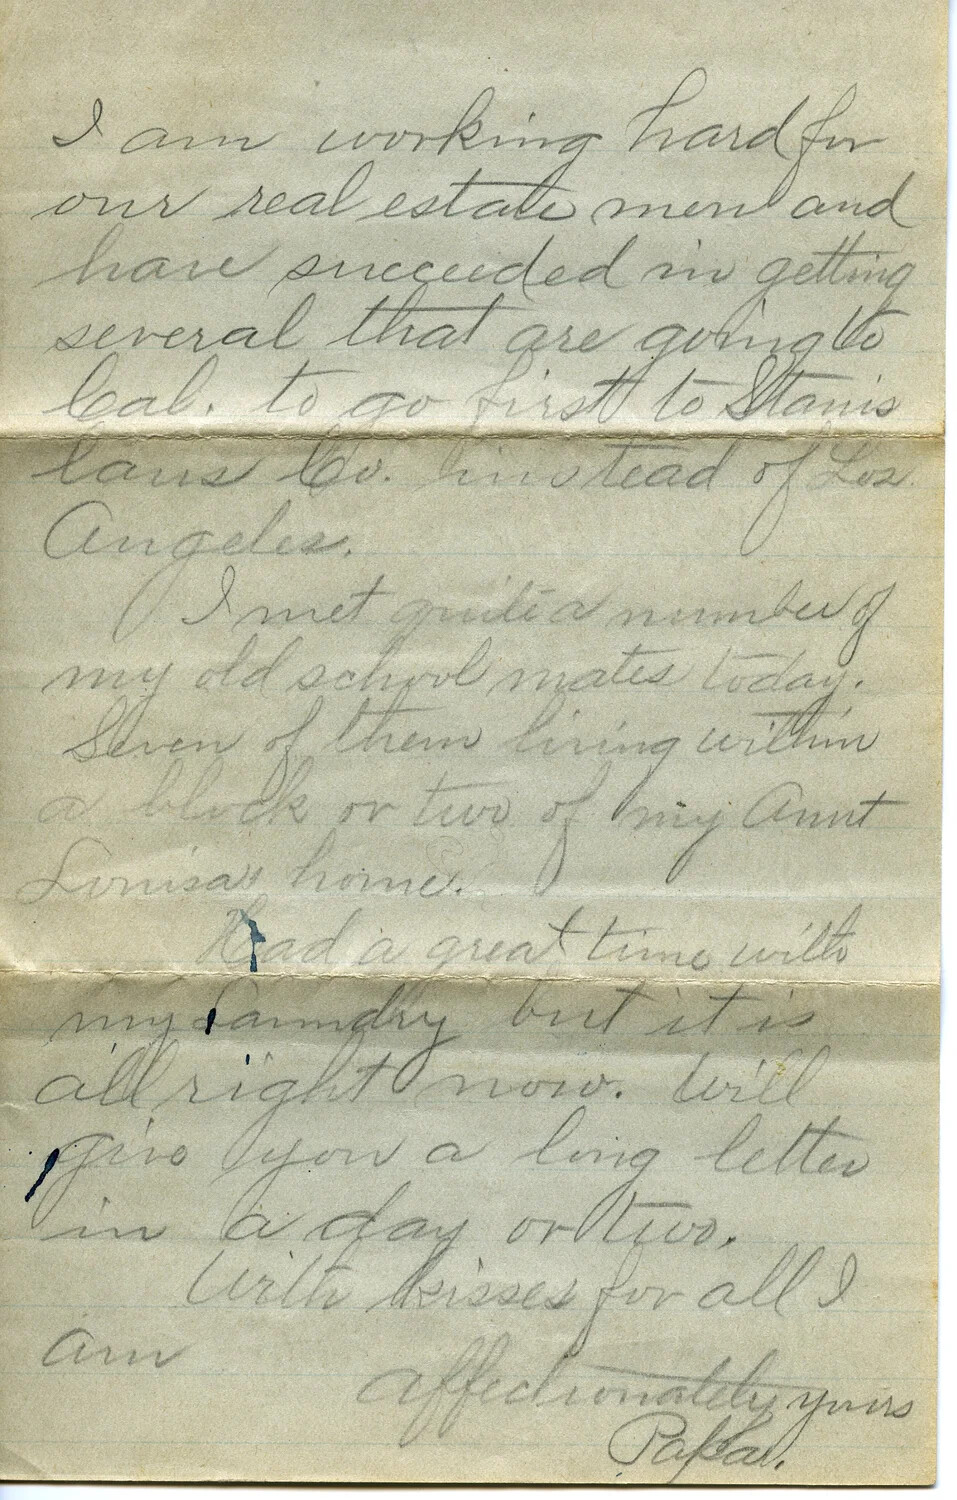 I am working hard for
our real estate men and
have succeeded in getting
several that are going to
Cal. to go first to Stanis
laus Co. instead of Los
Angeles.
I met quite a number of
my old school mates today.
Seven of them living within
a block or two of my Aunt
Louisa's home.
Had a great time with
my Laundry but it is
all right now. Will
give you a long letter
in a day or two.
With kisses for all I
am
affectionately yours
Papa.